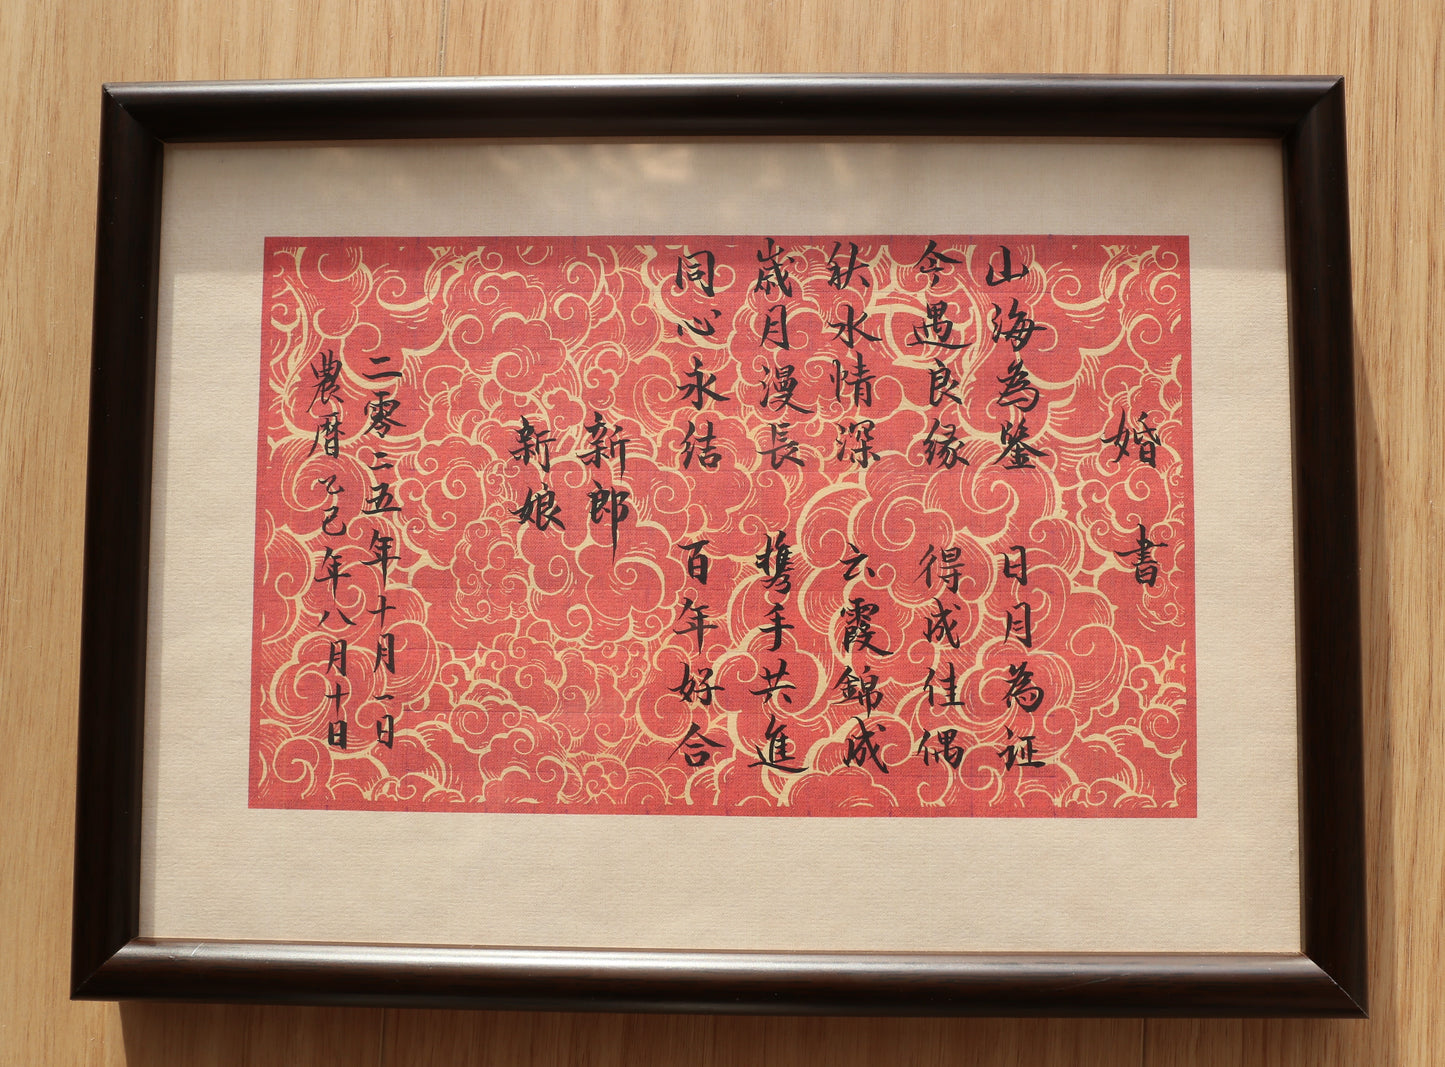 婚書
山海為鑒 日月為证
今遇良缘 得成佳偶
秋水情深 云霞錦成
歲月漫長 携手共進
同心永结 百年好合
新郎
新娘
二零二五年十月一日
農曆乙己年八月十日